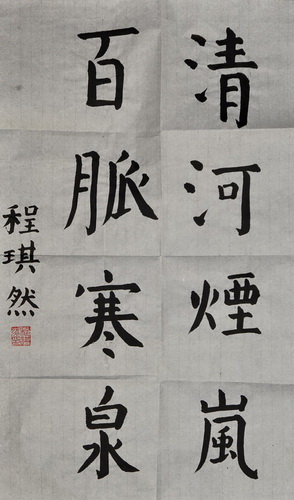 清河煙嵐
百脈寒泉
程琪然